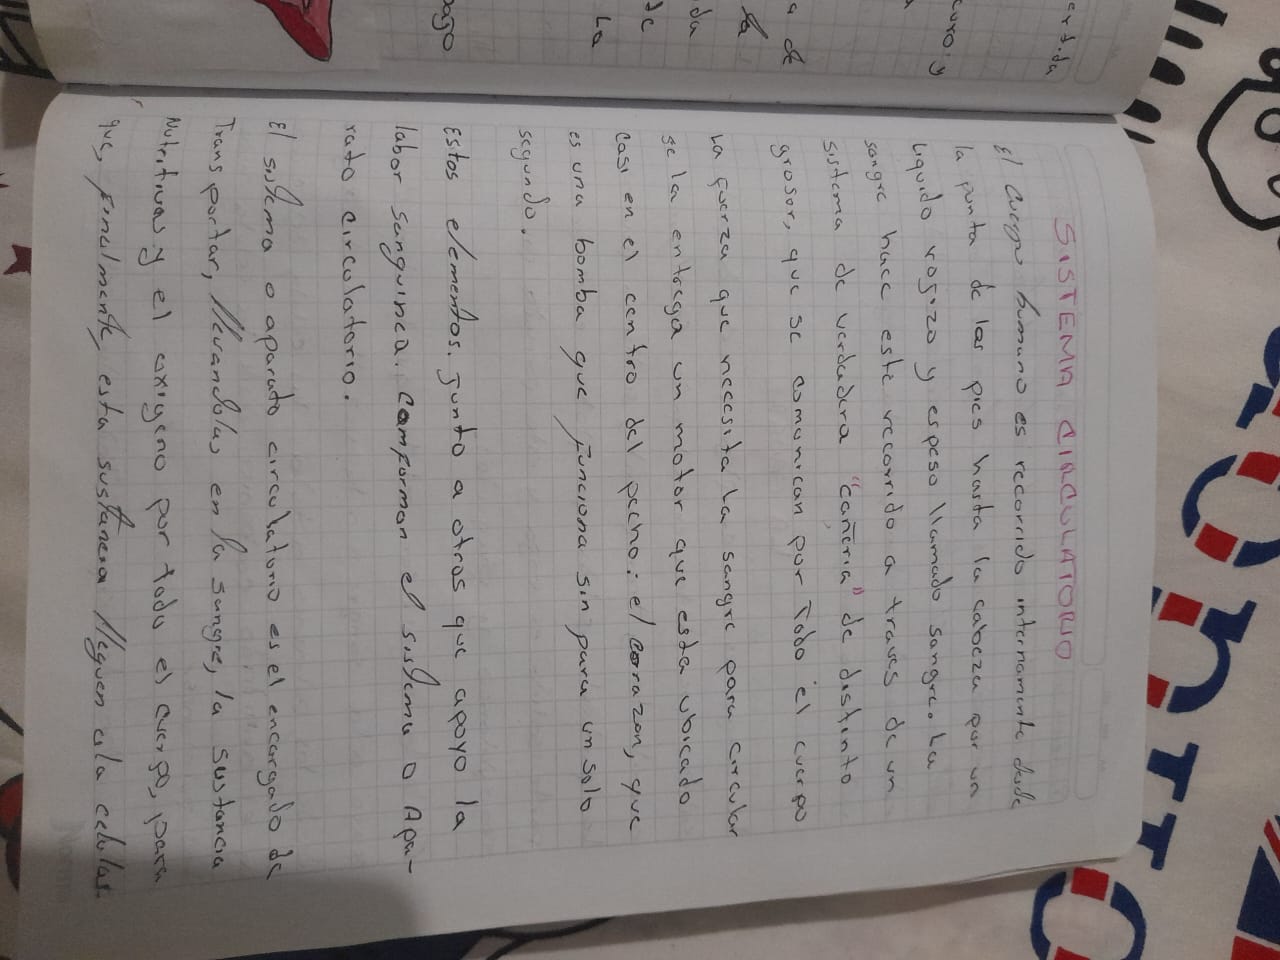 SISTEMA CIRCULATORIO
El cuerpo humano es recorrido internamente desde
la punta de los pies hasta la cabeza por un
liquido rogizo y espeso llamado sangre. La
sangre hace este recorrido a traves de un
sistema de verdadera "cañeria" de distinto
grosor, que se comunican por Todo el cuerpo
La fuerza que necesita la sangre para circular
se la entrega un motor que esta ubicado
casi en el centro del pecho: el corazon, que
es una bomba que funciona sin para un solo
segundo.
Estos elementos. junto a otros que apoyo la
labor sanguinea. Comforman el sistema o Apa-
rato circulatorio.
El sistema o aparato circulatorio es el encargado de
Transportar, llevandolas en la sangre, la sustancia
Nutritivas y el oxigeno por todo el cuerpo, para
que, finalmente, esta sustancia lleguen a la celulas.